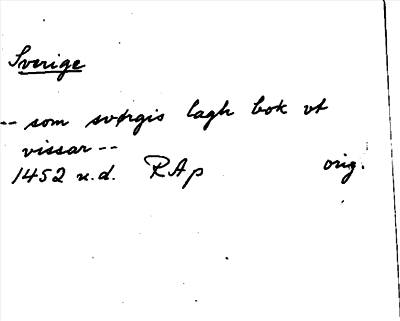 Sverige
-- som sværgis lagh bok vt
vissar --
1452 u.d. RAp orig.